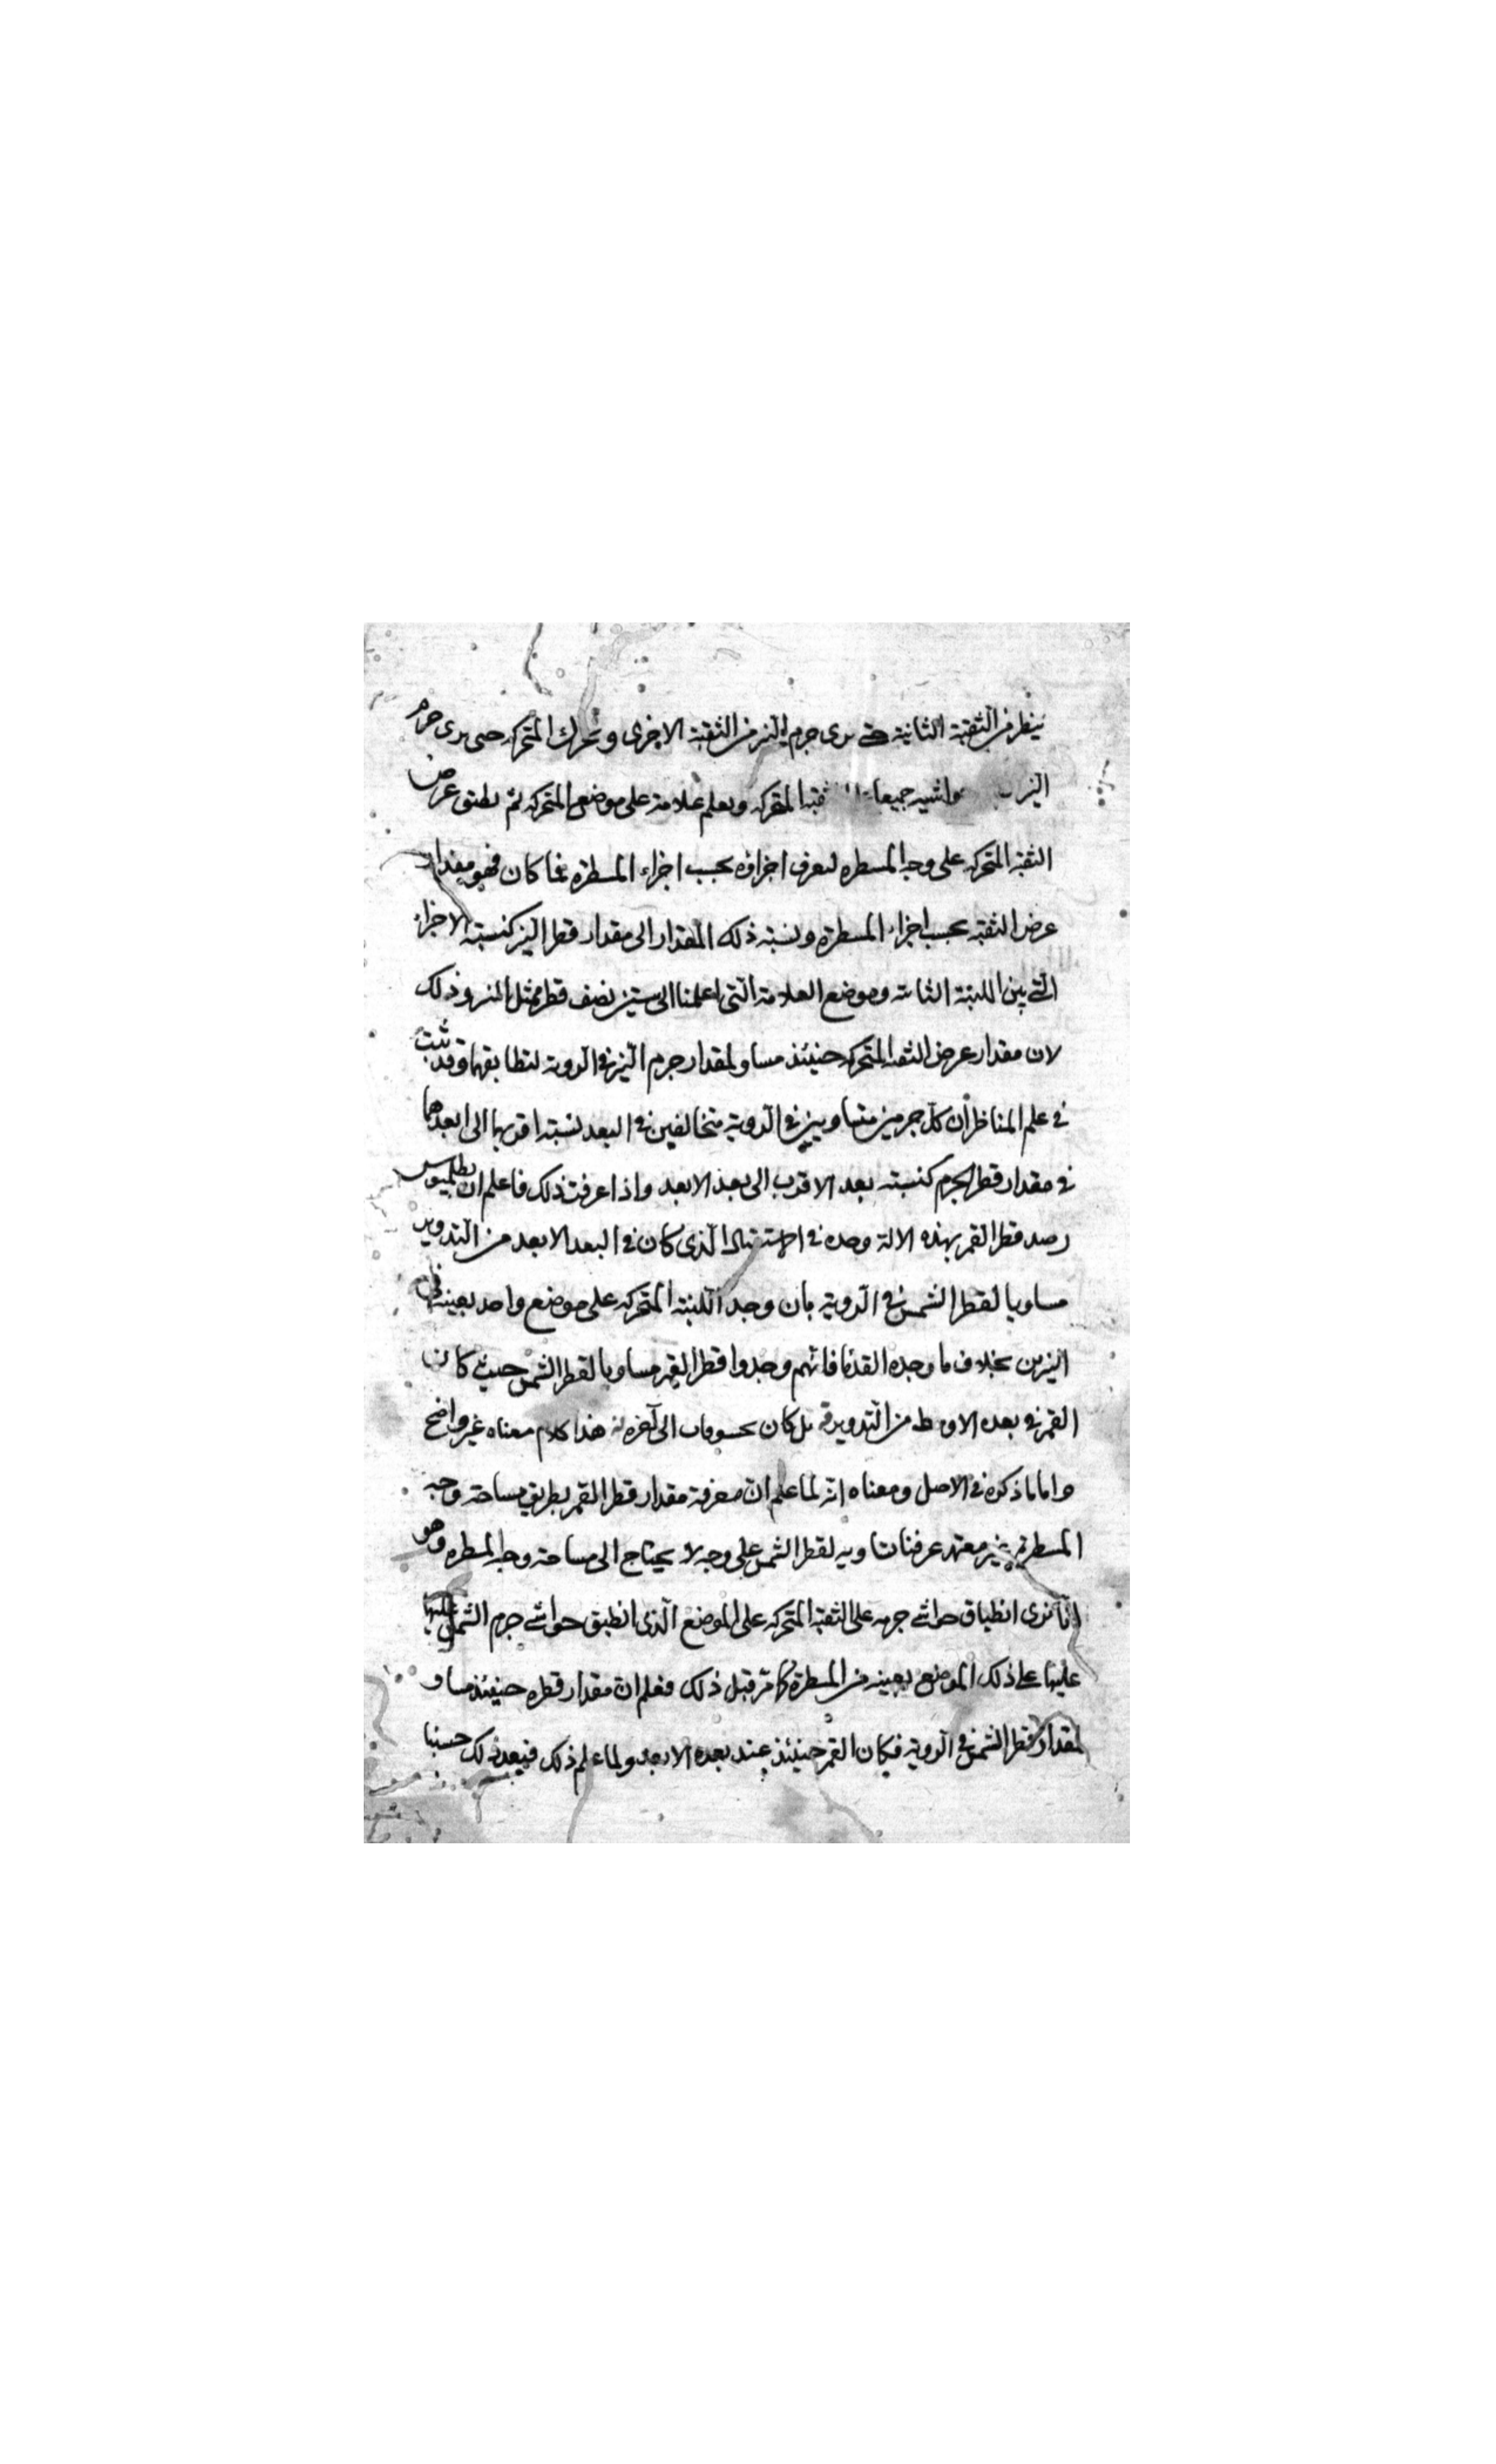 ينظر من الثقبة الثانية حتى يرى جرم النير من الثقبة الاخرى ونحرك المتحركة حتى يرى جرم
النير حواشيه جميعا المتحركة ويعلم علامة على موضع المتحركة ثم يطبق عرض
الثقبة المتحركة على وجه المسطرة لتعرف اجزاؤه بحسب اجزاء المسطرة فما كان فهو مقدار
عرض الثقبة بحسب اجزاء المسطرة ونسبة ذلك المقدار الى مقدار قطر النير كنسبة الاجزاء
التي بين اللبنة الثابتة وموضع العلامة التي اعلمنا الى ستين نصف قطر ممثل النير وذلك
لان مقدار عرض الثقبة المتحركة حينئذ مساو لمقدار جرم النير في الروية لتطابقهما وقد ثبت
في علم المناظر ان كل جرمين متساويين في الروية متخالفين في البعد نسبة اقربهما الى ابعدهما
في مقدار قطر الجرم كنسبة بعد الاقرب الى بعد الابعد واذا عرفت ذلك فاعلم ان بطلميوس
رصد قطر القمر بهذه الالة وحده في استقبال الذي كان في البعد الابعد من التدوير
مساويا لقطر الشمس في الروية بان وجد اللبنة المتحركة على موضع واحد بعينه في
النيرين بخلاف ما وجده القدما فانهم وجدوا قطر القمر مساويا لقطر الشمس حيث كان
القمر في بعده الاوسط من التدوير قه بل كان بحسوفات الى آخره هذا كلام معناه غير واضح
واما ما ذكره في الاصل ومعناه انه لما علم ان معرفة مقدار قطر القمر بطريق مساحة وجه
المسطرة غير معتمد عرفنا تساويه لقطر الشمس على وجه لا يحتاج الى مساحة وجه المسطرة وهو
انا نرى انطباق حواشي جرمه على الثقبة المتحركة على الموضع الذي انطبق حواشي جرم الشمس
عليها على ذلك الموضع بعينه من المسطرة كما مر قبل ذلك فعلم ان مقدار قطره حينئذ مساو
لمقدار قطر الشمس في الروية فكان القمر حينئذ عند بعده الابعد ولما علم ذلك فبعد ذلك حسبنا